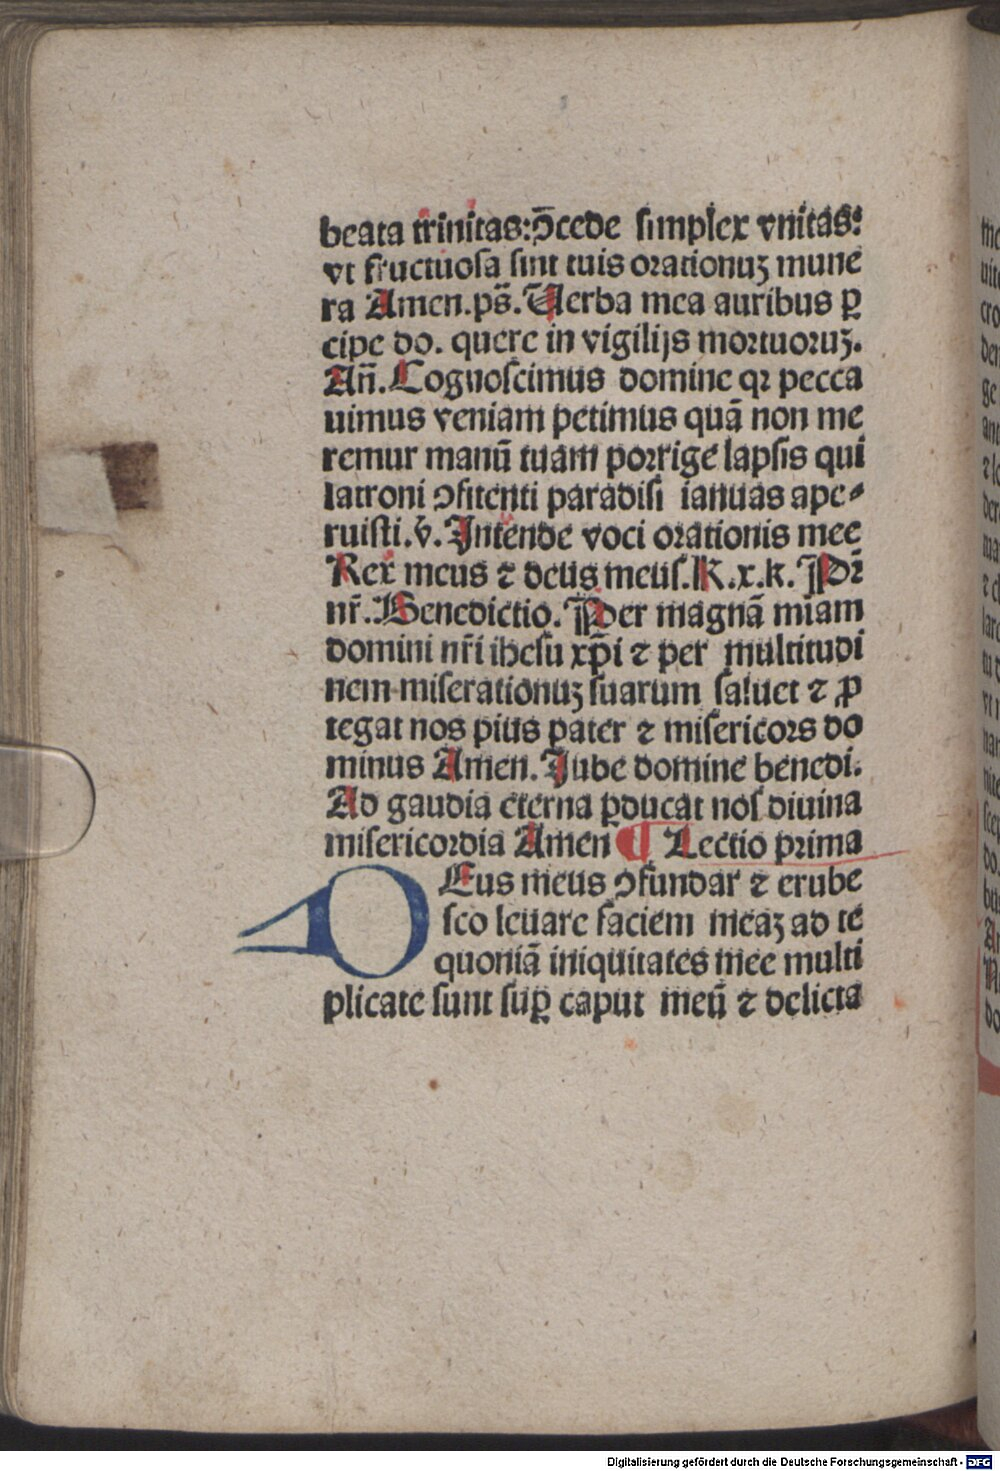 beata trinitas: ↄ̄cede simplex vnitas:
vt fructuosa sint tuis orationuʒ mune
ra Amen. ps̄. Uerba mea auribus ꝑ
cipe do. quere in vigilijs mortuoruʒ.
Añ. Cognoscimus domine qꝛ pecca
uimus veniam petimus quā non me
remur manū tuam porrige lapsis qui
latroni ↄfitenti paradisi ianuas ape⸗
ruisti. v̄. Intende voci orationis mee
Rex meus ⁊ deus meus. K. x. k. Pr̄
nr̄. Benedictio. Per magnā miam
domini nr̄i ihesu xp̄i ⁊ per multitudi
nem miserationuʒ suarum saluet ⁊ ꝓ
tegat nos pius pater ⁊ misericors do
minus Amen. Jube domine benedi.
Ad gaudia eterna ꝑducat nos diuina
misericordia Amen ¶ Lectio prima
DEus meus ↄfundar ⁊ erube
sco leuare faciem meaʒ ad te
quoniā iniquitates mee multi
plicate sunt suꝑ caput meū ⁊ delicta
Digitalisierung gefördert durch die Deutsche Forschungsgemeinschaft - DFG